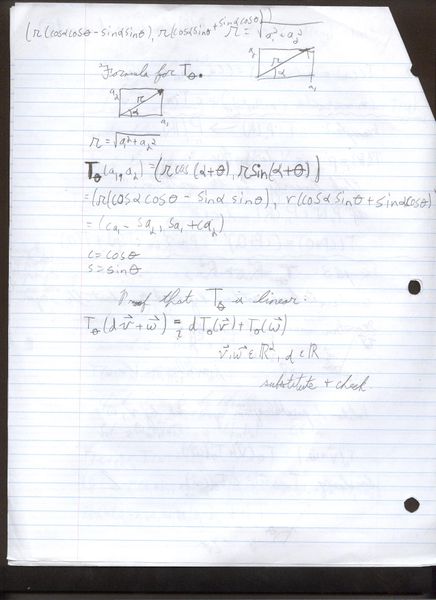 (r(cosαcosθ - sinαsinθ), r(cosαsinθ + sinαcosθ))
r = √a₁² + a₂²
a₂ r α a₁
Formula for T_θ.
a₂ r α a₁
r = √a₁² + a₂²
T_θ(a₁, a₂) = (r cos(α+θ), r sin(α+θ))
= (r(cosα cosθ - sinα sinθ), r(cosα sinθ + sinα cosθ)
= (ca₁ - sa₂, sa₁ + ca₂)
c = cosθ
s = sinθ
Proof that T_θ is linear:
T_θ(d v⃗ + w⃗) = d T_θ(v⃗) + T_θ(w⃗)
v⃗, w⃗ ∈ ℝ², d ∈ ℝ
substitute + check